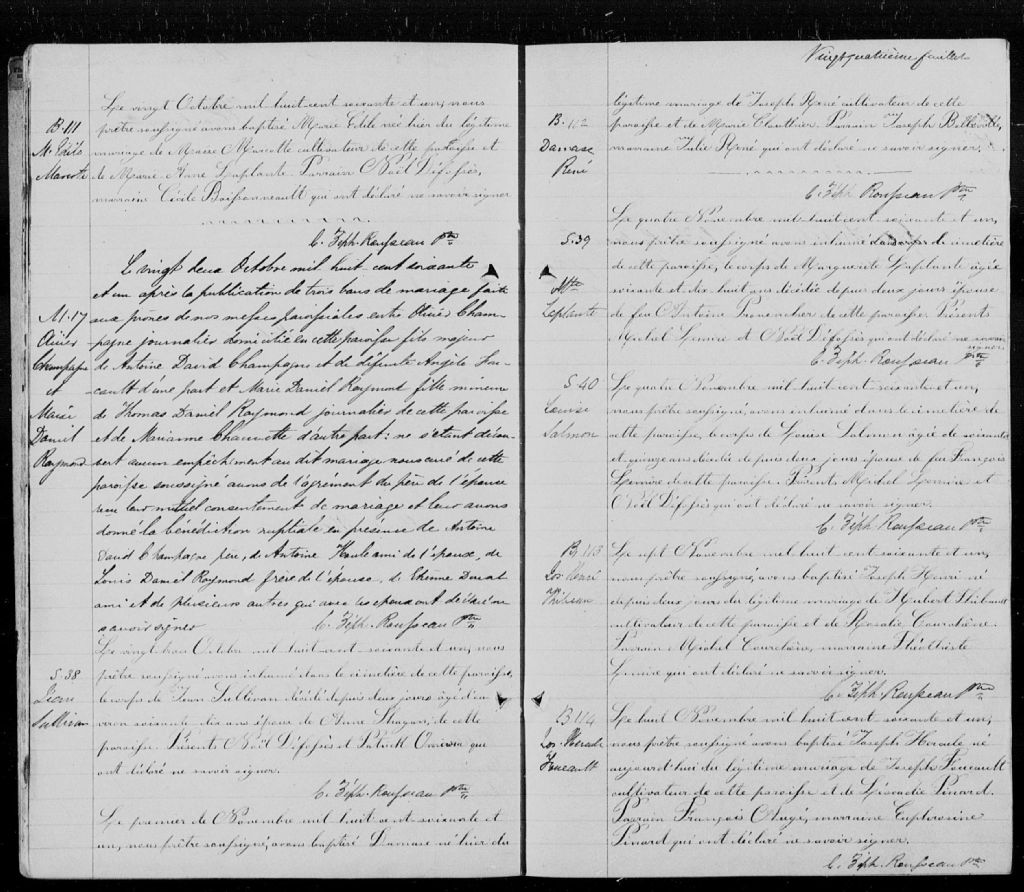 B. 111
M. Edile
Marcotte
Le vingt Octobre mil huit cent soixante et un, nous
prêtre soussigné avons baptisé Marie Edile née hier du légitime
mariage de Moïse Marcotte cultivateur de cette paroisse et
de Marie Anne Laplante Parrain Noël Défossés,
marraine Cécile Boissonneault qui ont déclaré ne savoir signer
C. Zéph. Rousseau Ptre
M. 17
Olivier
Champagne
et
Marie
Daniel
Raymond
Le vingt deux Octobre mil huit cent soixante
et un après la publication de trois bans de mariage faite
aux prônes de nos messes paroissiales entre Olivier Cham-
pagne journalier domicilié en cette paroisse fils majeur
de Antoine David Champagne et de défunte Angèle
d'une part et Marie Daniel Raymond fille mineure
de Thomas Daniel Raymond journalier de cette paroisse
et de Marianne Chaurette d'autre part: ne s'étant décou-
vert aucun empêchement au dit mariage nous curé de cette
paroisse soussigné avons de l'agrément du père de l'épouse
reçu leur mutuel consentement de mariage et leur avons
donné la bénédiction nuptiale en présence de Antoine
David Champagne père, de Antoine Houle ami de l'épouse, de
Louis Daniel Raymond frère de l'épouse, de Etienne
ami et de plusieurs autres qui avec les époux ont déclaré ne
savoir signer C. Zéph. Rousseau Ptre
S. 38
Sullivan
Le vingt trois Octobre mil huit cent soixante et un, nous
prêtre soussigné avons inhumé dans le cimetière de cette paroisse,
le corps de Sullivan décédé depuis deux jours âgé d'en
viron soixante dix ans époux de Anne de cette
paroisse. Présents Noël Défossés et Patrick qui
ont déclaré ne savoir signer.
C. Zéph. Rousseau Ptre
Le premier de Novembre mil huit cent soixante et
un, nous prêtre soussigné, avons baptisé Damase né hier du
Vingt quatrième feuillet
B. 112
Damase
René
légitime mariage de Joseph René cultivateur de cette
paroisse et de Marie Parrain Joseph
marraine Julie René qui ont déclaré ne savoir signer.
C. Zéph. Rousseau Ptre
S. 39
Mte
Laplante
Le quatre Novembre mil huit cent soixante et un,
nous prêtre soussigné avons inhumé dans le cimetière
de cette paroisse, le corps de Marguerite Laplante âgée
soixante et dix huit ans décédée depuis deux jours épouse
de feu Antoine Provencher de cette paroisse Présents
Michel Lemire et Noël Défossés qui ont déclaré ne savoir
signer
C. Zéph. Rousseau Ptre
S. 40
Louise
Salmon
Le quatre Novembre mil huit cent soixante et un,
nous prêtre soussigné, avons inhumé dans le cimetière de
cette paroisse, le corps de Louise Salmon âgée de soixante
et quinze ans décédée depuis deux jours épouse de feu François
Lemire de cette paroisse. Présents Michel Lemire et
Noël Défossés qui ont déclaré ne savoir signer.
C. Zéph. Rousseau Ptre
B. 113
Jos. Henri
Le sept Novembre mil huit cent soixante et un,
nous prêtre soussigné, avons baptisé Joseph Henri né
depuis deux jours du légitime mariage de Hubert
cultivateur de cette paroisse et de Rosalie Courchène.
Parrain Michel Courchène, marraine
Lemire qui ont déclaré ne savoir signer.
C. Zéph. Rousseau Ptre
B. 114
Jos. Hercule
Foucault
Le huit Novembre mil huit cent soixante et un,
nous prêtre soussigné avons baptisé Joseph Hercule né
aujourd'hui du légitime mariage de Joseph Foucault
cultivateur de cette paroisse et de Léocadie Pinard.
Parrain François Augé, marraine Euphrosine
Pinard qui ont déclaré ne savoir signer.
C. Zéph. Rousseau Ptre